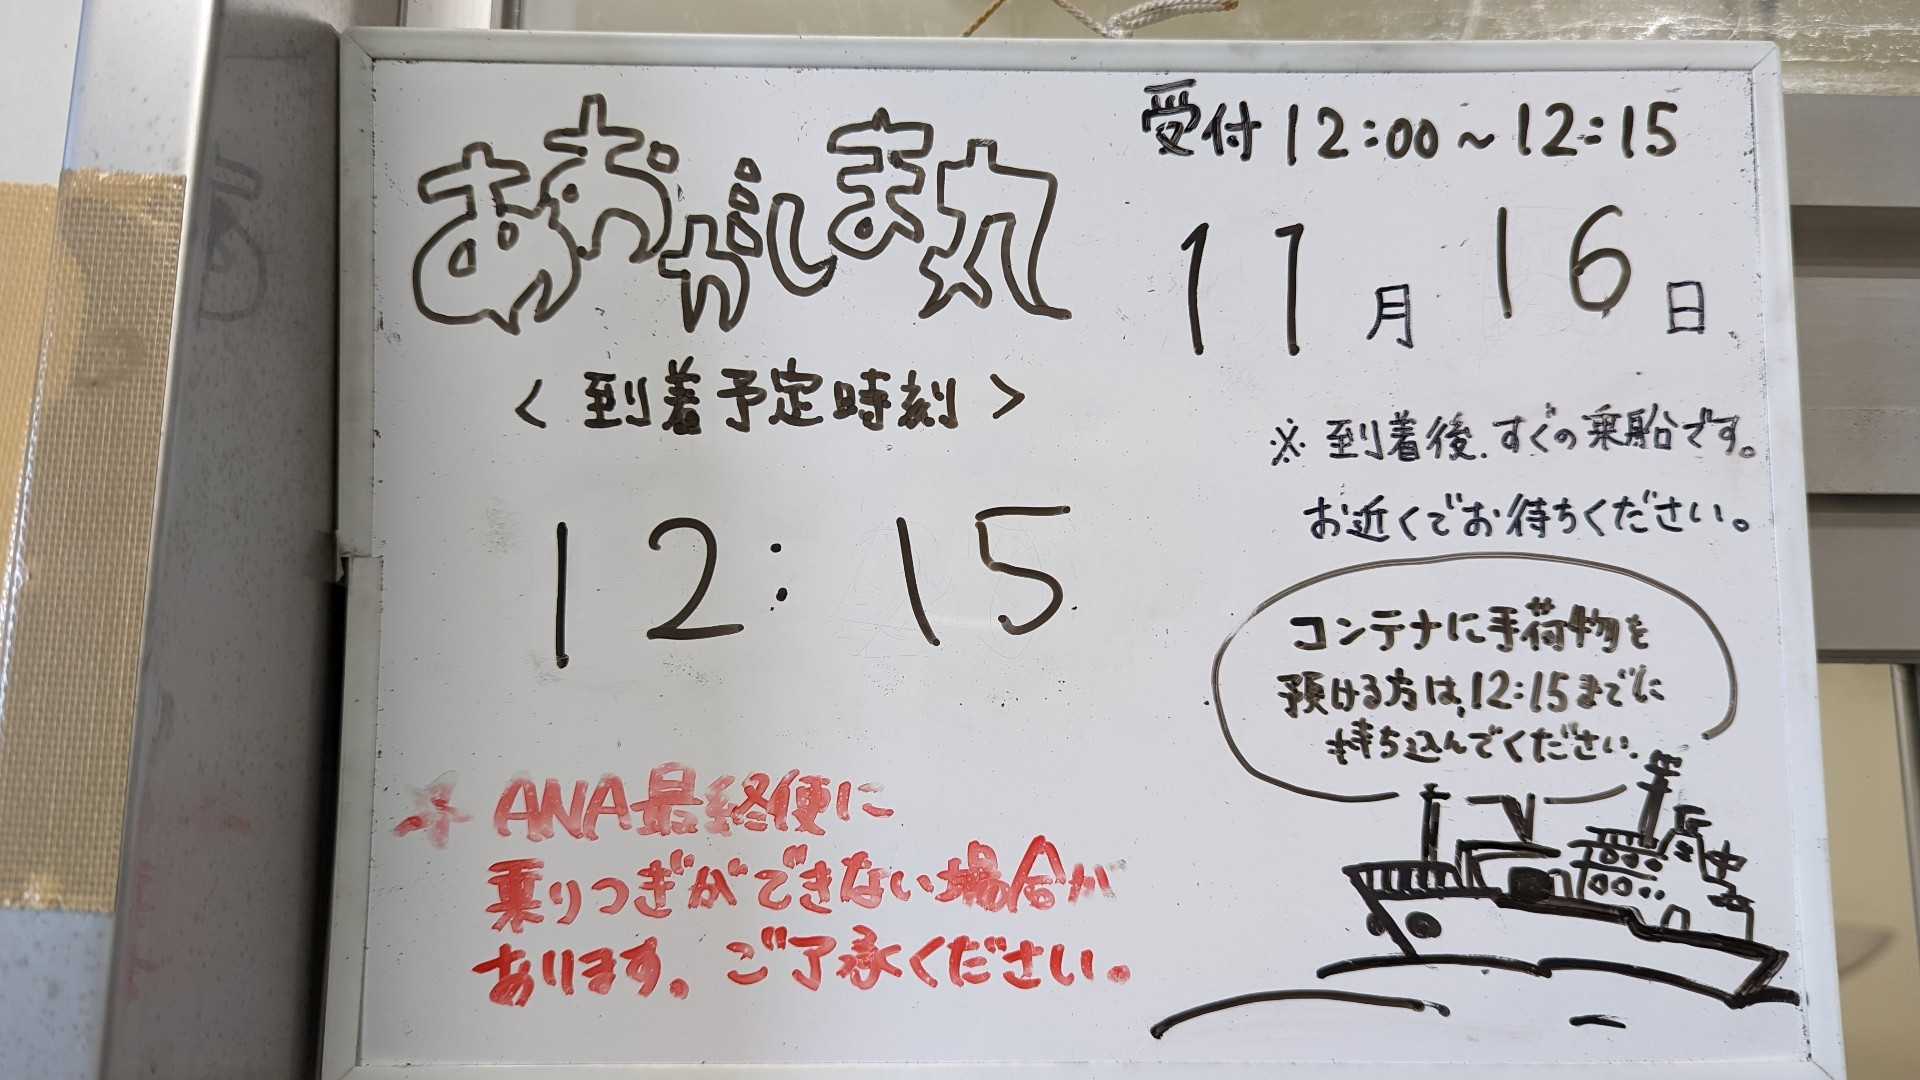 あおがしま丸
受付 12:00~12:15
11月 16日
<到着予定時刻>
12:15
※到着後、すぐの乗船です。
お近くでお待ちください。
コンテナに手荷物を
預ける方は、12:15までに
持ち込んでください。
ANA最終便に
乗りつぎができない場合が
あります。ご了承ください。